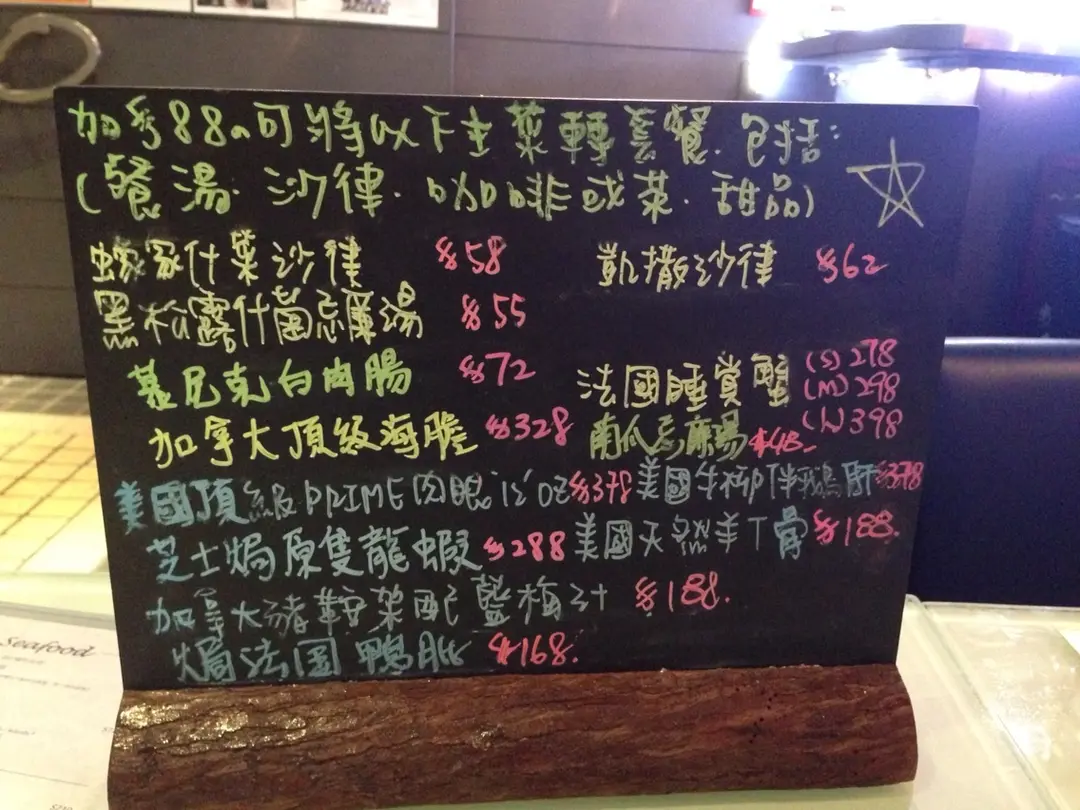 加$88可將以下主菜轉套餐.包括:
(餐湯.沙律.咖啡或茶.甜品)
什菜沙律 $58
凱撒沙律 $62
黑松露什菌忌廉湯 $55
慕尼克白肉腸 $72
法國睡賞蟹 (S)278
(M)298
(L)398
加拿大頂級海膽 $328
南瓜忌廉湯 $48
美國頂級PRIME肉眼12oz $378
美國牛柳伴鵝肝 $378
芝士焗原隻龍蝦 $288
美國天然羊T骨 $188.
加拿大豬鞍架配藍梅汁 $188.
焗法國鴨脾 $168.
Seafood